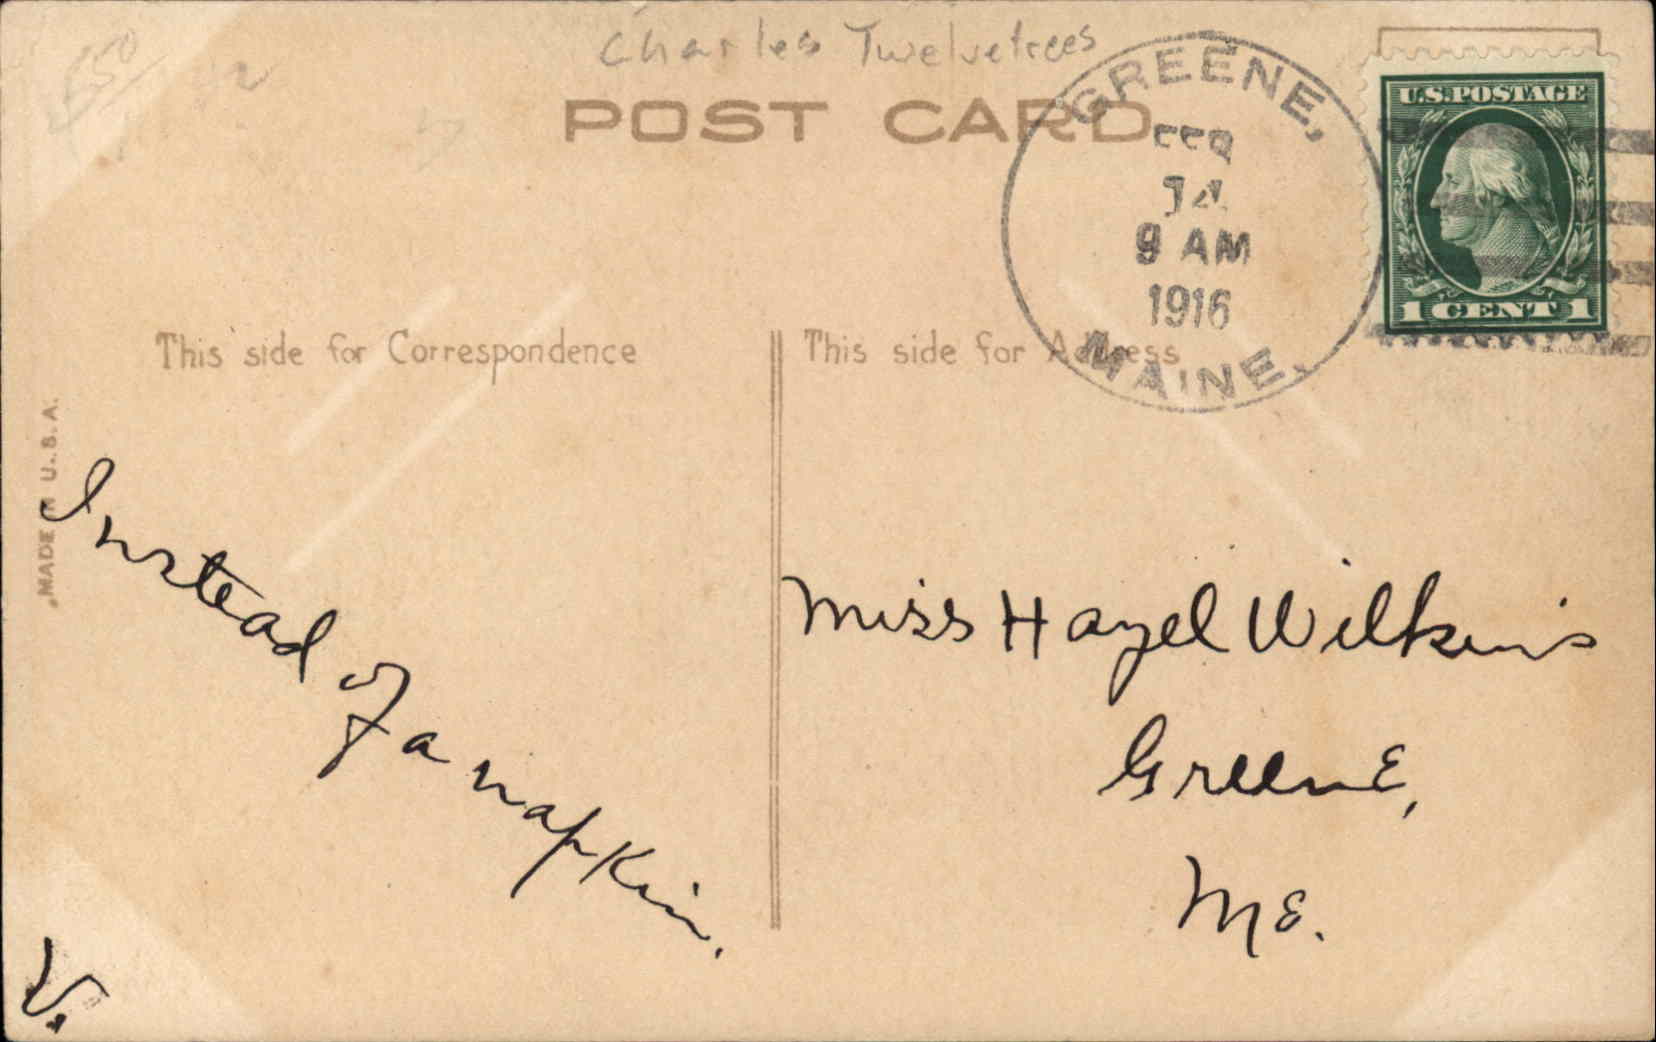 Charles Twelvetrees
POST CARD
GREENE,
FEB
14
9 AM
1916
MAINE.
U.S. POSTAGE
1 CENT 1
This side for Correspondence
This side for Address
MADE IN U.S.A.
Instead of a napkin.
V.
Miss Hazel Wilkins
Greene,
Me.